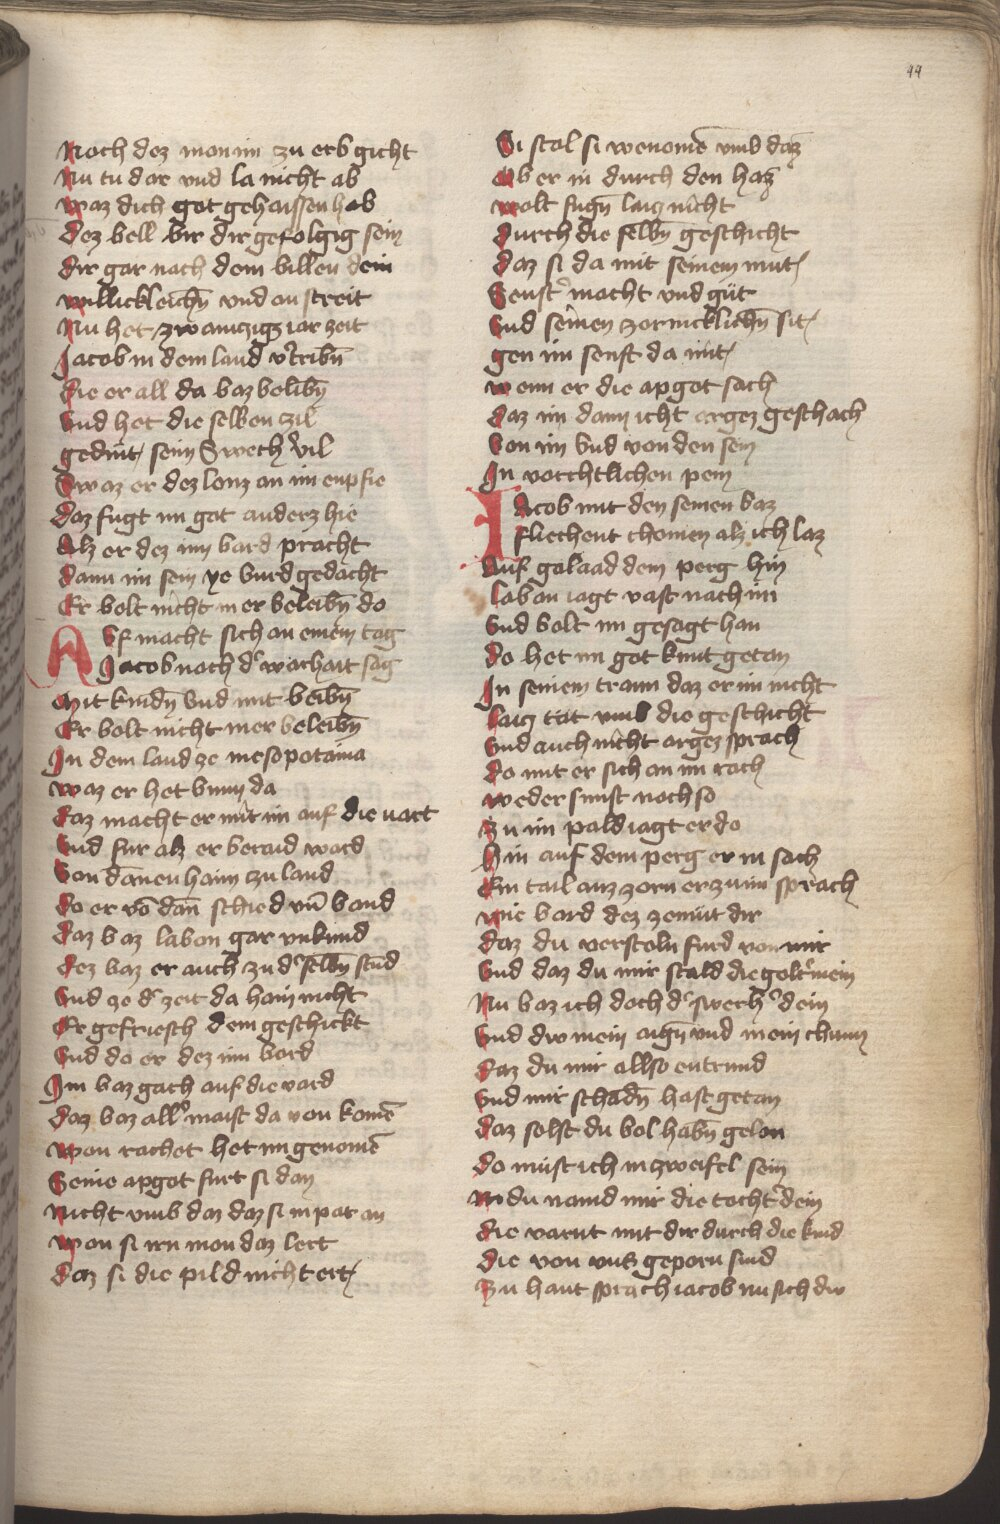 44
Noch dez mon im zu erb gicht
Nu tu dar vnd la nicht ab
waz dich got gehaissen hab
dez bell bir dir gefolgig sein
dir gar nach dem billen dein
willickleichn̄ vnd an streit
Nu het zwainczigz iar zeit
Jacob in dem land v'tribn̄
die er all da baz belibn̄
Vnd het die selben zil
gedint seim Swech' vil
Swaz er dez lonz an im enpfie
daz fugt im got anderz hie
Alz er dez inn bard pracht
dann im sein ye burd gedacht
Er bolt nicht mer beleibn̄ do
AVf macht sich an einem tag
Jacob noch d' warhait sag
Mit kindn̄ Vnd mit beibn̄
Er bolt nicht mer beleibn̄
In dem land ze mesopotaina
waz er het bunn da
daz macht er mit im auf die uart
Vnd fur alz er beraid ward
Von dannen haim zu land
do er vō dan̄ schied vn̄ band
daz baz laban gar vnkund
dez baz er auch zu d' selbn̄ stūd
Vnd ze d' zeit da haim nicht
Er gefriesch dem geschickt
Vnd do er dez inn bord
Im baz gach auf die vard
daz baz all' maist da von komē
Won rachel het im genomē
Seine apgot furt si dan
Nicht vmb daz daz si in pat an
Won si irn mon daz lert
daz si die pild nicht ert
Si stal si wenomē vmb daz
Ob er in durch den haz
wolt fugn̄ laiz nicht
durch die selbn̄ geschicht
daz si da mit seinem mut
Senft' macht vnd güt
Vnd seinen zornicklichn̄ sit
gen im senft da mit
wenn er die apgot sach
daz im dann icht argez geschach
Von im Vnd von den sein
In vorchtlichen pein
IAcob mit den seinen baz
fliechent chomen alz ich laz
Auf galaad dem perg hin
laban iagt vast nach im
Vnd bolt im gesagt han
do het im got kunt getan
In seinem traum daz er im nicht
laiz tat vmb die geschicht
Vnd auch nicht argez sprach
do mit er sich an im rach
weder sunst noch so
Zu im pald iagt er do
Hin auf dem perg er in sach
Ein tail auz zorn er zu im sprach
wie bard dez zemüt dir
daz du verstoln furd von mir
Vnd daz du mir stald die golt' mein
Nu baz ich doch d' swech' dein
Vnd dw mein aign̄ vnd mein chunn
daz du mir allso entrund
Vnd mir schadn̄ hast getan
daz solst du bol habn̄ gelon
do müst ich in zweifel sein
Nv du namd mir die tocht' dein
die varnt mit dir durch die kind
die von vns geporn sind
Zu hant sprach iacob nu sich dw